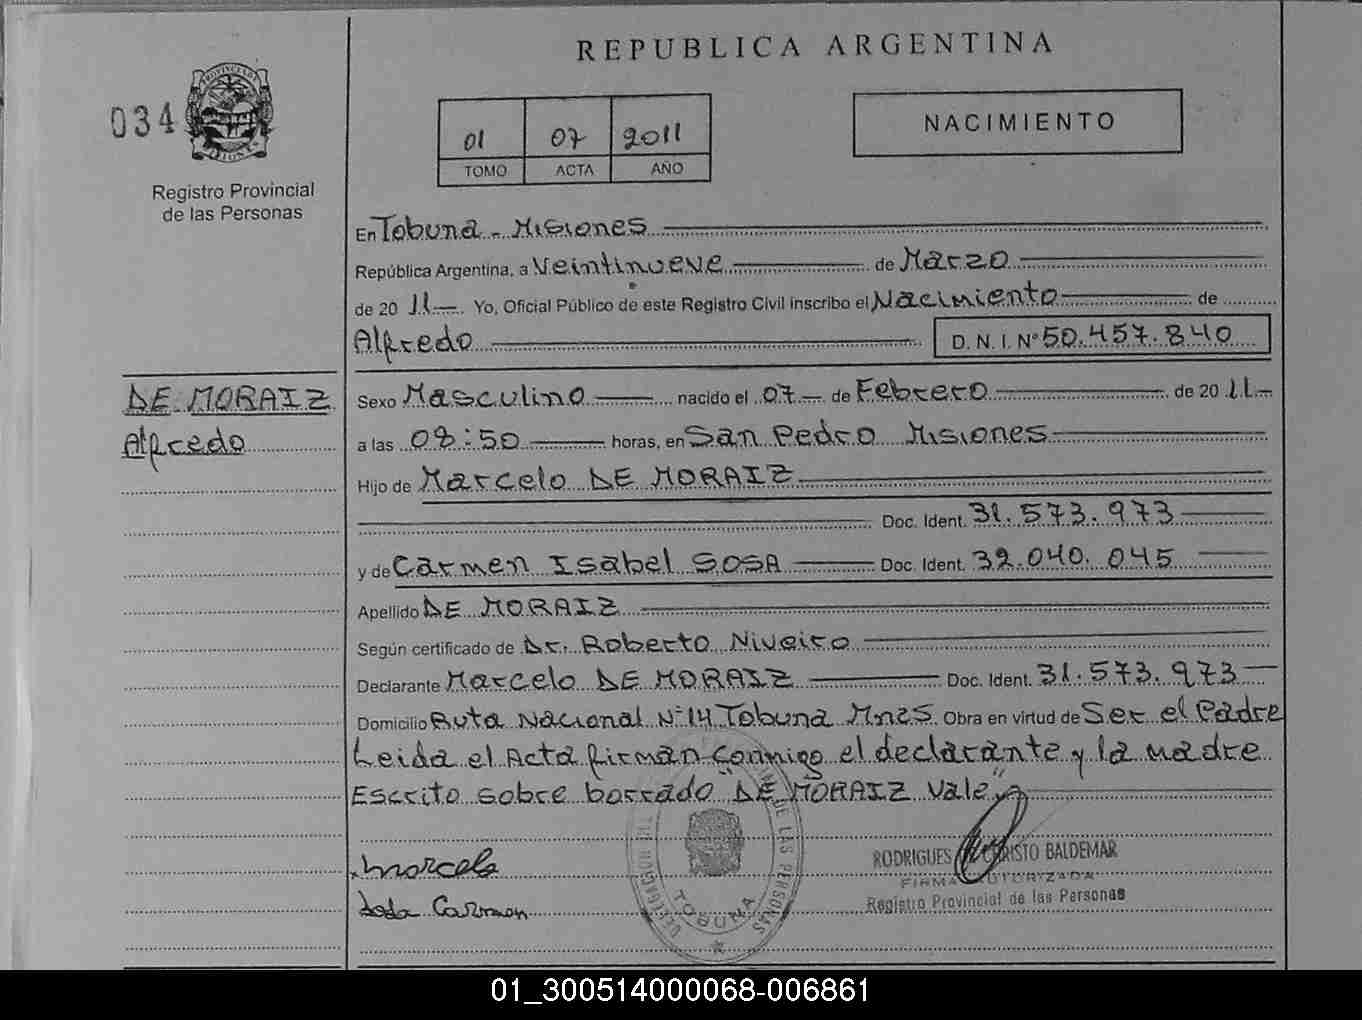 REPUBLICA ARGENTINA
034
01 07 2011
TOMO ACTA AÑO
NACIMIENTO
Registro Provincial
de las Personas
En Tobuna - Misiones
República Argentina, a Veintinueve de Marzo
de 20 11 Yo, Oficial Público de este Registro Civil inscribo el Nacimiento de
Alfredo D. N. I. Nº 50.457.840
DE MORAIZ
Alfredo
Sexo Masculino nacido el 07 de Febrero de 20 11
a las 08:50 horas, en San Pedro Misiones
Hijo de Marcelo DE MORAIZ
Doc. Ident. 31.573.973
y de Carmen Isabel SOSA Doc. Ident. 32.040.045
Apellido DE MORAIZ
Según certificado de Dr. Roberto Niveiro
Declarante Marcelo DE MORAIZ Doc. Ident. 31.573.973
Domicilio Ruta Nacional Nº 14 Tobuna Mnes Obra en virtud de Ser el Padre
Leida el Acta firman conmigo el declarante y la madre
Escrito sobre borrado "DE MORAIZ Vale"
Marcelo
Carmen
TOBUNA
DE LAS PERSONAS
RODRIGUES BALDEMAR
FIRMA AUTORIZADA
Registro Provincial de las Personas
01_300514000068-006861